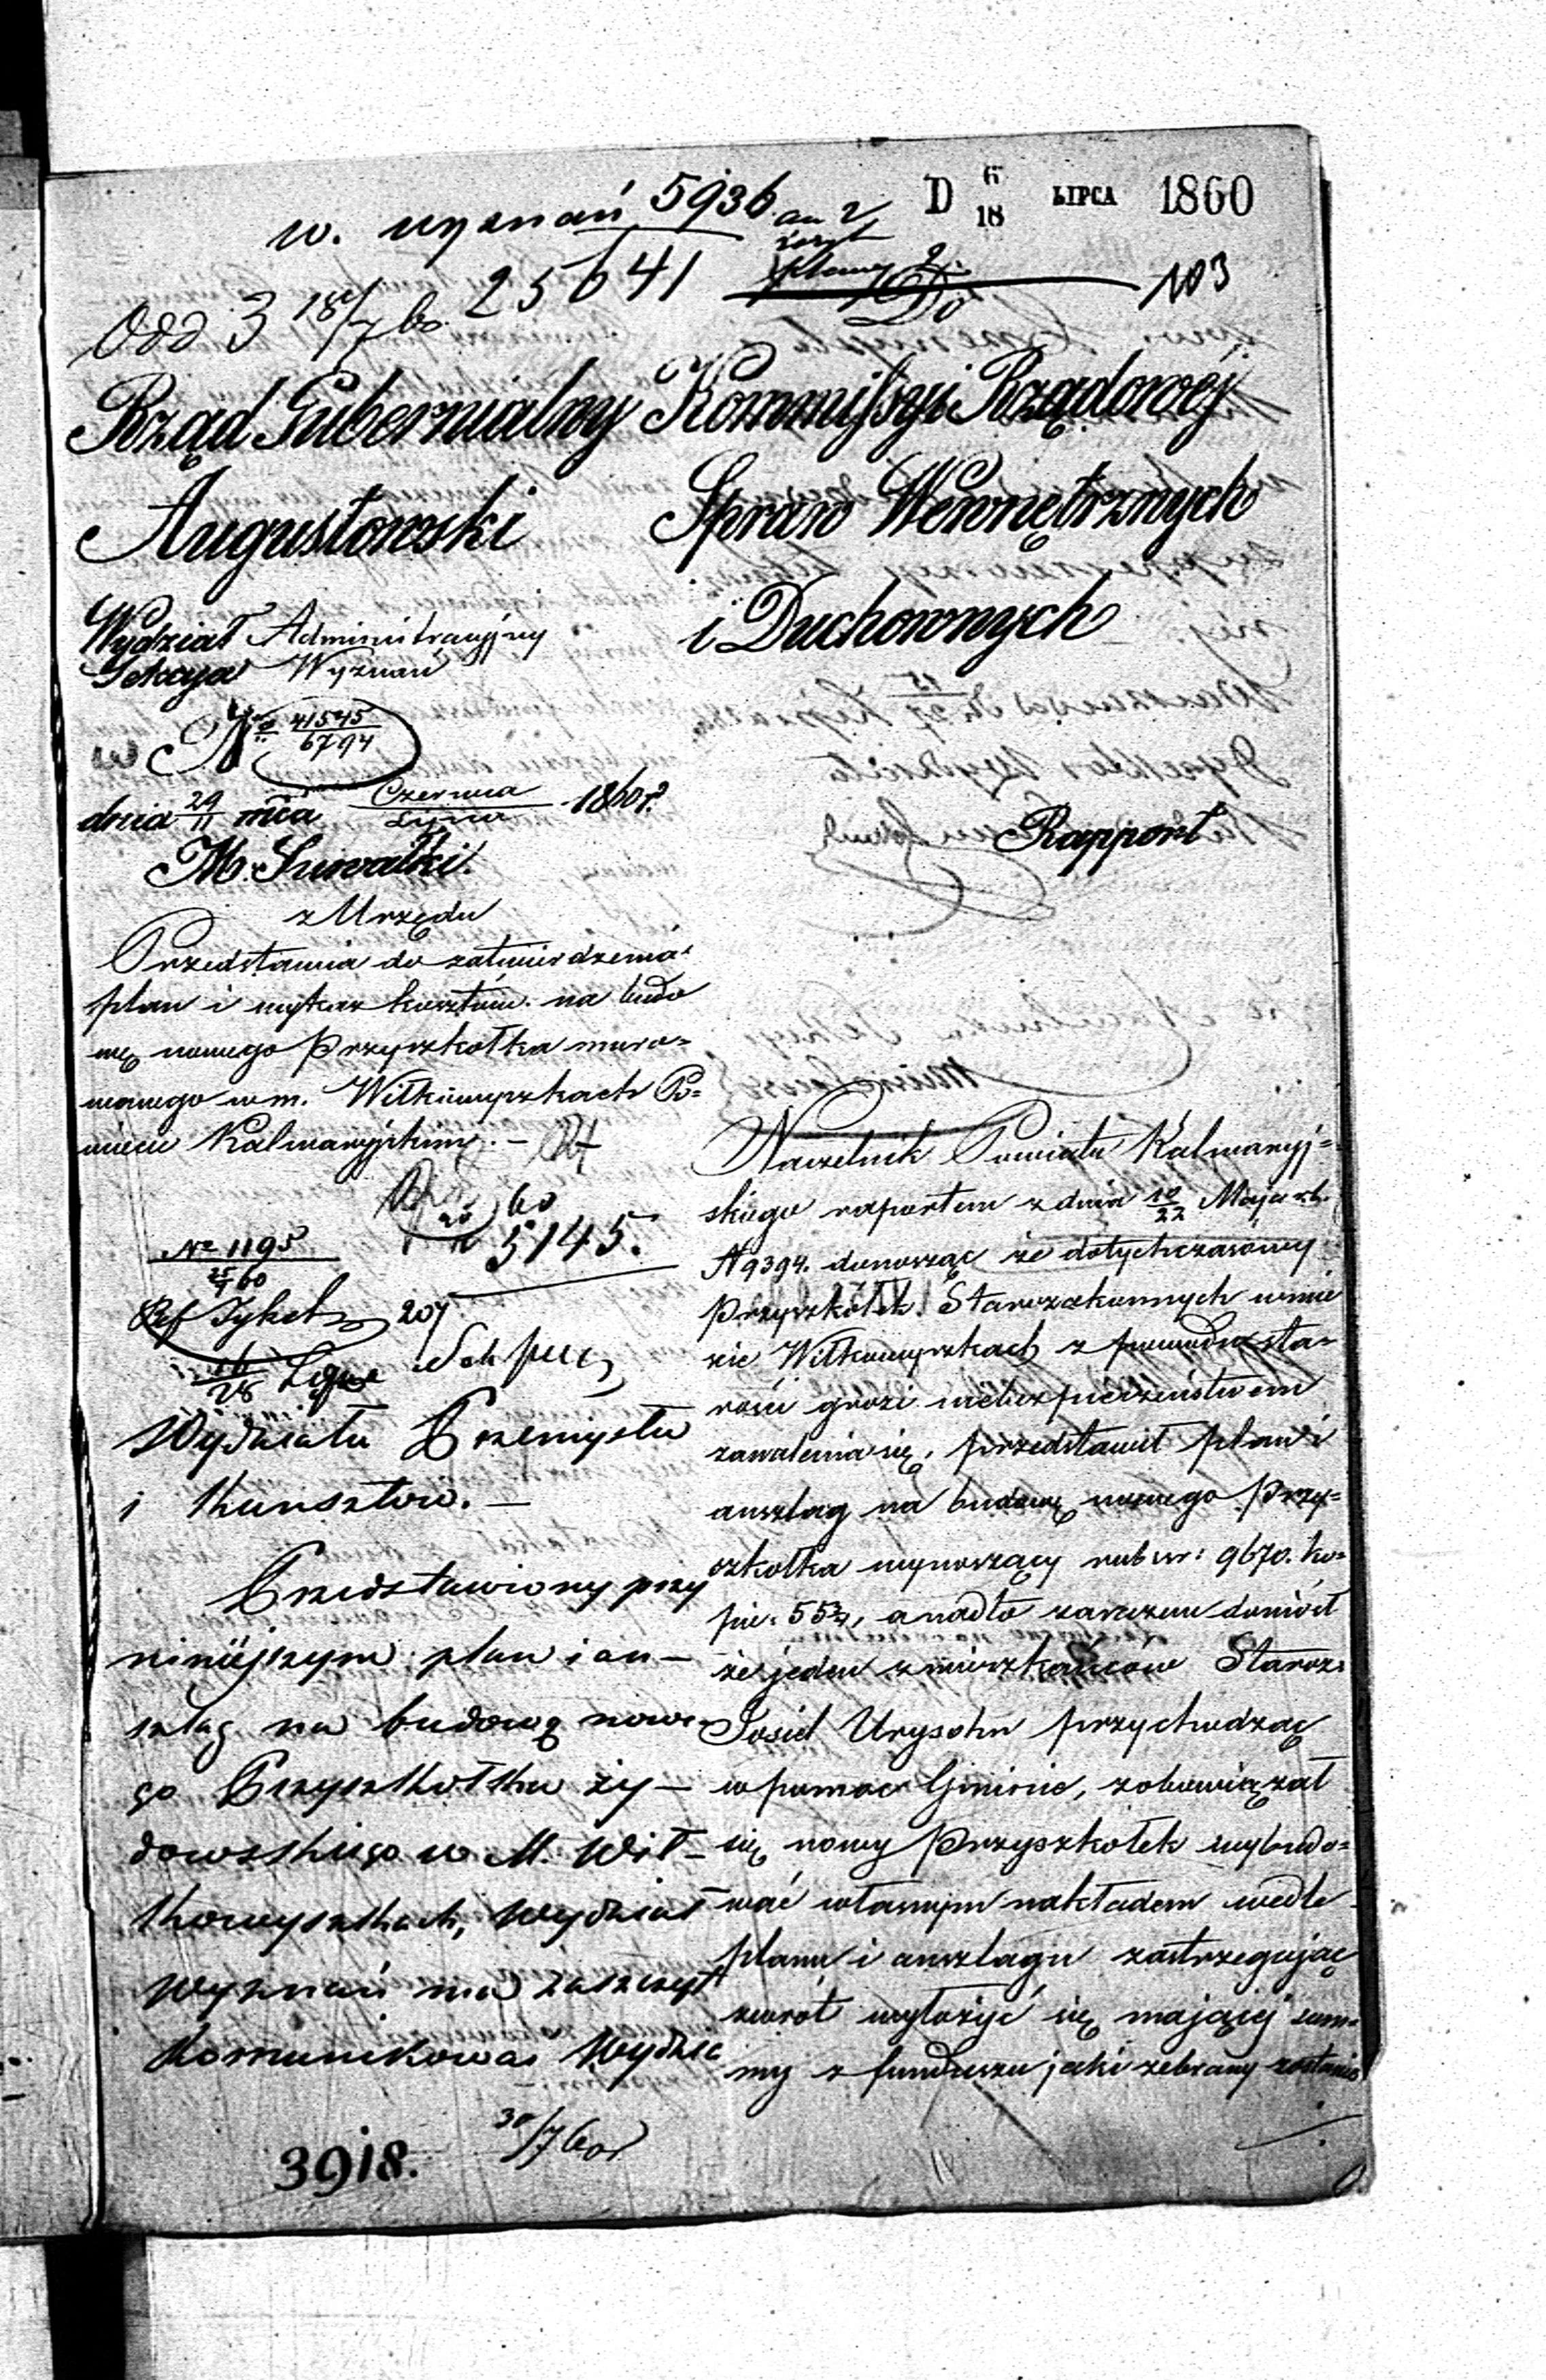 w. wyznań 5936
D 6/18 LIPCA 1860
Odd 3 18/7 60. 25641
Do
103
Rząd Gubernialny
Augustowski
Wydział Administracyjny
Sekcya Wyznań
No 41545/6794
dnia 29/11 mca Czerwca/Lipca 1860 r.
M. Suwałki.
z Urzędu
Przedstawia do zatwierdzenia
plan i wykaz kosztów na budo
wę nowego Przyszkołka muro=
wanego w m. Wiłkowyszkach Po=
wiecie Kalwaryjskim. –
60
5145.
No 1195
25/7 60
207
16/28 Lipca
Wydziału Przemysłu
i Kunsztów. –
Przedstawiony przy
niniejszym plan i an–
szlag na budowę nowe–
go Przyszkołka ży–
dowskiego w M. Wił–
kowyszkach, Wydział
Wyznań ma zaszczyt
komunikować Wydzia
30/7 60
3918.
Kommissyi Rządowéj
Spraw Wewnętrznych
i Duchownych
Rapport
Naczelnik Powiatu Kalwaryj=
skiego raportem z dnia 10/22 Maja r.b.
N 9394. donosząc że dotychczasowy
Przyszkołek Starozakonnych w mie
ście Wiłkowyszkach z powodu sta=
rości grozi niebezpieczeństwem
zawalenia się, przedstawił plan i
anszlag na budowę nowego Przy=
szkołka wynoszący rub sr: 9670. ko=
pie: 55¾, a nadto zarazem doniósł
że jeden z mieszkańców Staroz:
Josiel Urysohn przychodząc
w pomoc Gminie, zobowiązał
się nowy Przyszkołek wybudo=
wać własnym nakładem wedle
planu i anszlagu zastrzegając
zwrot wyłożyć się mającéj sum=
my z funduszu jaki zebrany zostanie